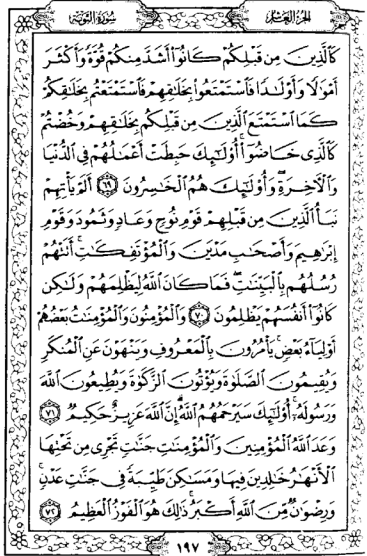 الجزء العاشر
سورة التوبة
كَٱلَّذِينَ مِن قَبْلِكُمْ كَانُوٓا۟ أَشَدَّ مِنكُمْ قُوَّةً وَأَكْثَرَ
أَمْوَٰلًا وَأَوْلَٰدًا فَٱسْتَمْتَعُوا۟ بِخَلَٰقِهِمْ فَٱسْتَمْتَعْتُم بِخَلَٰقِكُمْ
كَمَا ٱسْتَمْتَعَ ٱلَّذِينَ مِن قَبْلِكُم بِخَلَٰقِهِمْ وَخُضْتُمْ
كَٱلَّذِى خَاضُوٓا۟ ۚ أُو۟لَٰٓئِكَ حَبِطَتْ أَعْمَٰلُهُمْ فِى ٱلدُّنْيَا
وَٱلْءَاخِرَةِ ۖ وَأُو۟لَٰٓئِكَ هُمُ ٱلْخَٰسِرُونَ ٦٩ أَلَمْ يَأْتِهِمْ
نَبَأُ ٱلَّذِينَ مِن قَبْلِهِمْ قَوْمِ نُوحٍ وَعَادٍ وَثَمُودَ وَقَوْمِ
إِبْرَٰهِيمَ وَأَصْحَٰبِ مَدْيَنَ وَٱلْمُؤْتَفِكَٰتِ ۚ أَتَتْهُمْ
رُسُلُهُم بِٱلْبَيِّنَٰتِ ۖ فَمَا كَانَ ٱللَّهُ لِيَظْلِمَهُمْ وَلَٰكِن
كَانُوٓا۟ أَنفُسَهُمْ يَظْلِمُونَ ٧٠ وَٱلْمُؤْمِنُونَ وَٱلْمُؤْمِنَٰتُ بَعْضُهُمْ
أَوْلِيَآءُ بَعْضٍ ۚ يَأْمُرُونَ بِٱلْمَعْرُوفِ وَيَنْهَوْنَ عَنِ ٱلْمُنكَرِ
وَيُقِيمُونَ ٱلصَّلَوٰةَ وَيُؤْتُونَ ٱلزَّكَوٰةَ وَيُطِيعُونَ ٱللَّهَ
وَرَسُولَهُۥٓ ۚ أُو۟لَٰٓئِكَ سَيَرْحَمُهُمُ ٱللَّهُ ۗ إِنَّ ٱللَّهَ عَزِيزٌ حَكِيمٌ ٧١
وَعَدَ ٱللَّهُ ٱلْمُؤْمِنِينَ وَٱلْمُؤْمِنَٰتِ جَنَّٰتٍ تَجْرِى مِن تَحْتِهَا
ٱلْأَنْهَٰرُ خَٰلِدِينَ فِيهَا وَمَسَٰكِنَ طَيِّبَةً فِى جَنَّٰتِ عَدْنٍ ۚ
وَرِضْوَٰنٌ مِّنَ ٱللَّهِ أَكْبَرُ ۚ ذَٰلِكَ هُوَ ٱلْفَوْزُ ٱلْعَظِيمُ ٧٢
١٩٧